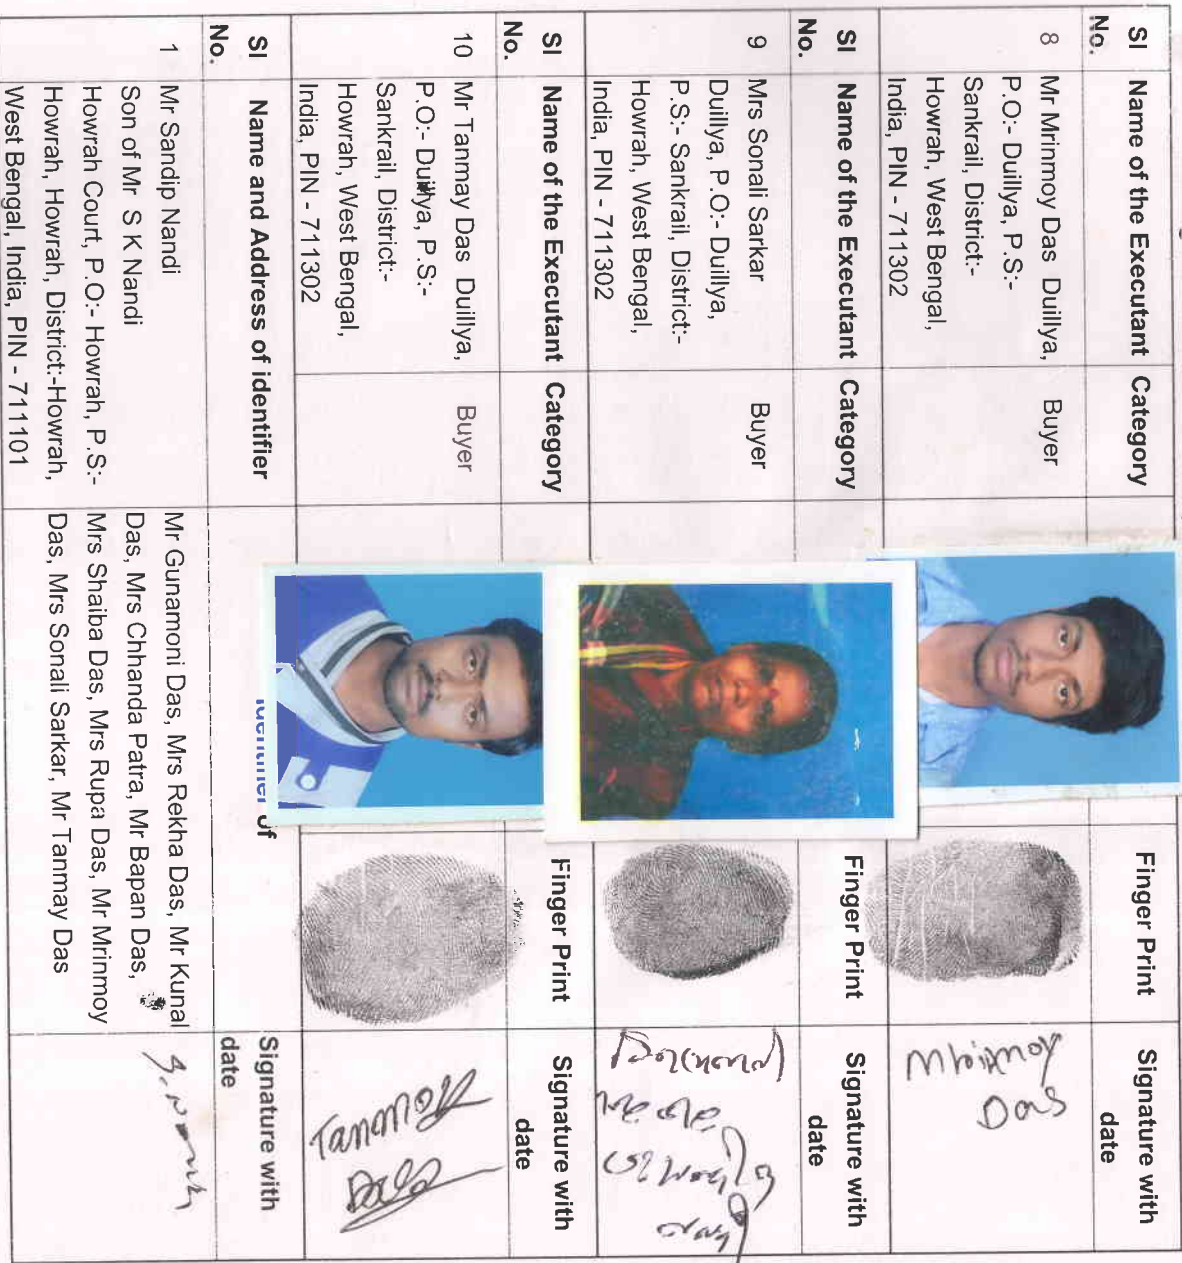 Sl No. Name of the Executant Category Finger Print Signature with date
8 Mr Mrinmoy Das Duillya, Buyer
P.O:- Duillya, P.S:-
Sankrail, District:-
Howrah, West Bengal,
India, PIN - 711302
Mrinmoy
Das
Sl No. Name of the Executant Category Finger Print Signature with date
9 Mrs Sonali Sarkar Buyer
Duillya, P.O:- Duillya,
P.S:- Sankrail, District:-
Howrah, West Bengal,
India, PIN - 711302
Sl No. Name of the Executant Category Finger Print Signature with date
10 Mr Tanmay Das Duillya, Buyer
P.O:- Duillya, P.S:-
Sankrail, District:-
Howrah, West Bengal,
India, PIN - 711302
Tanmay
Das
Sl No. Name and Address of identifier Identifier of Signature with date
1 Mr Sandip Nandi
Son of Mr S K Nandi
Howrah Court, P.O:- Howrah, P.S:-
Howrah, Howrah, District:-Howrah,
West Bengal, India, PIN - 711101
Mr Gunamoni Das, Mrs Rekha Das, Mr Kunal
Das, Mrs Chhanda Patra, Mr Bapan Das,
Mrs Shaiba Das, Mrs Rupa Das, Mr Mrinmoy
Das, Mrs Sonali Sarkar, Mr Tanmay Das